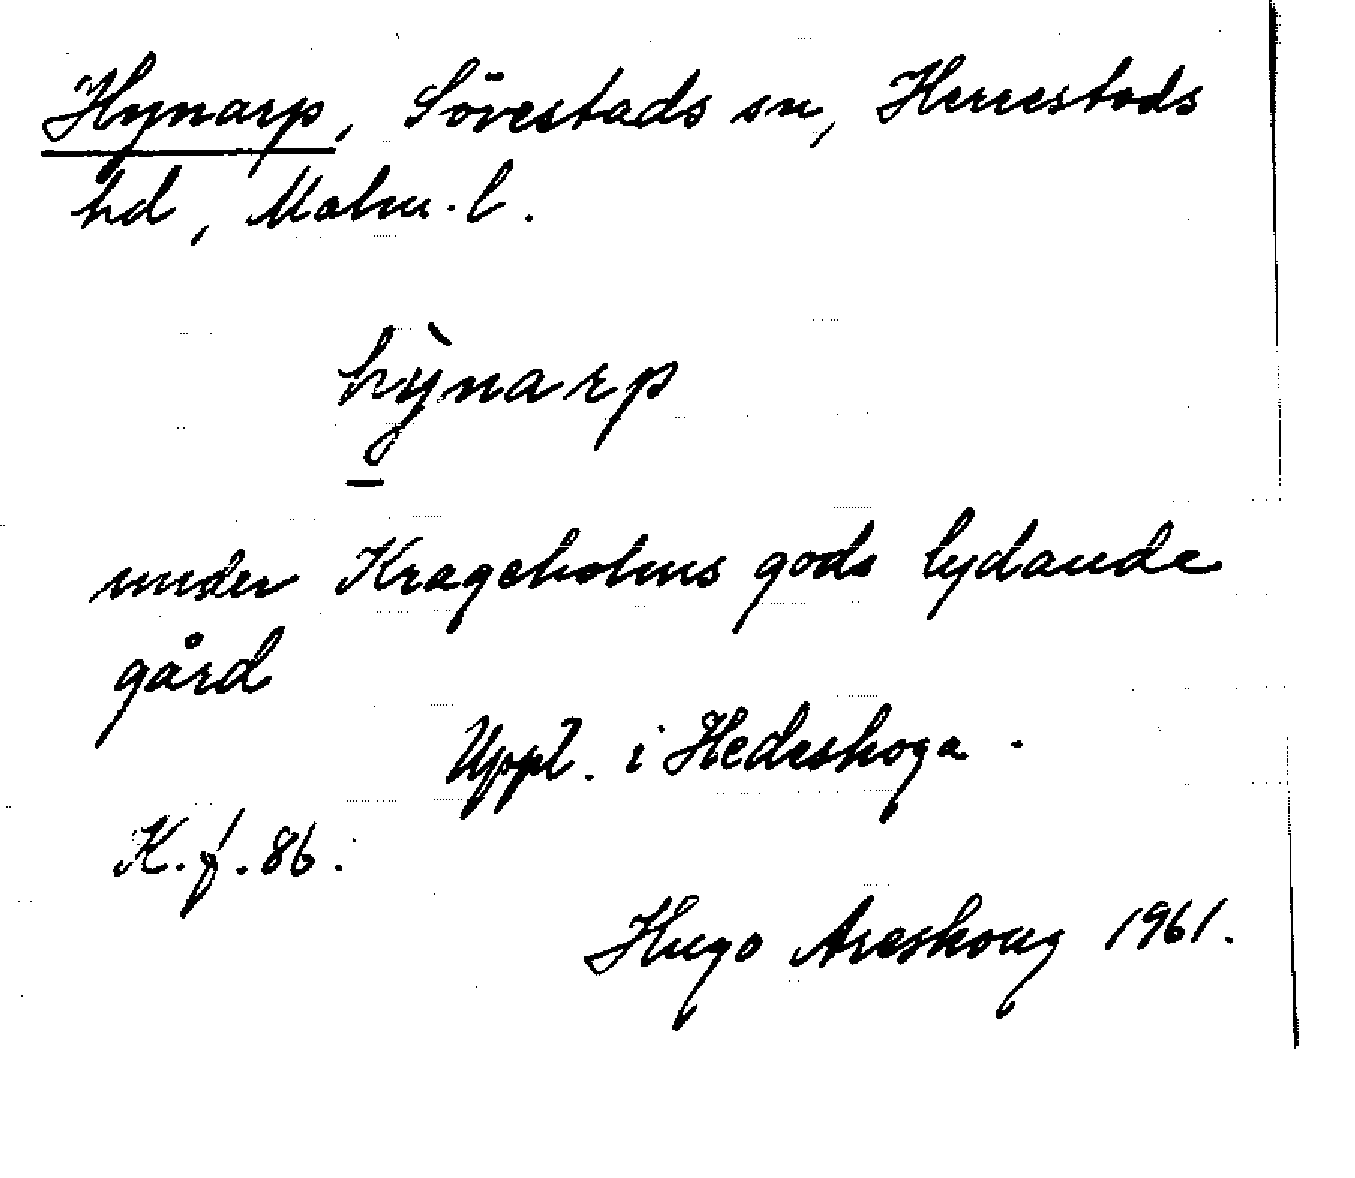 Hynarp, Sövestads sn, Herrestads
hd, Malm. l.
hỳ̱narp
under Krageholms gods lydande
gård
Uppt. i Hedeskoga.
K. f. 86.
Hugo Areskoug 1961.